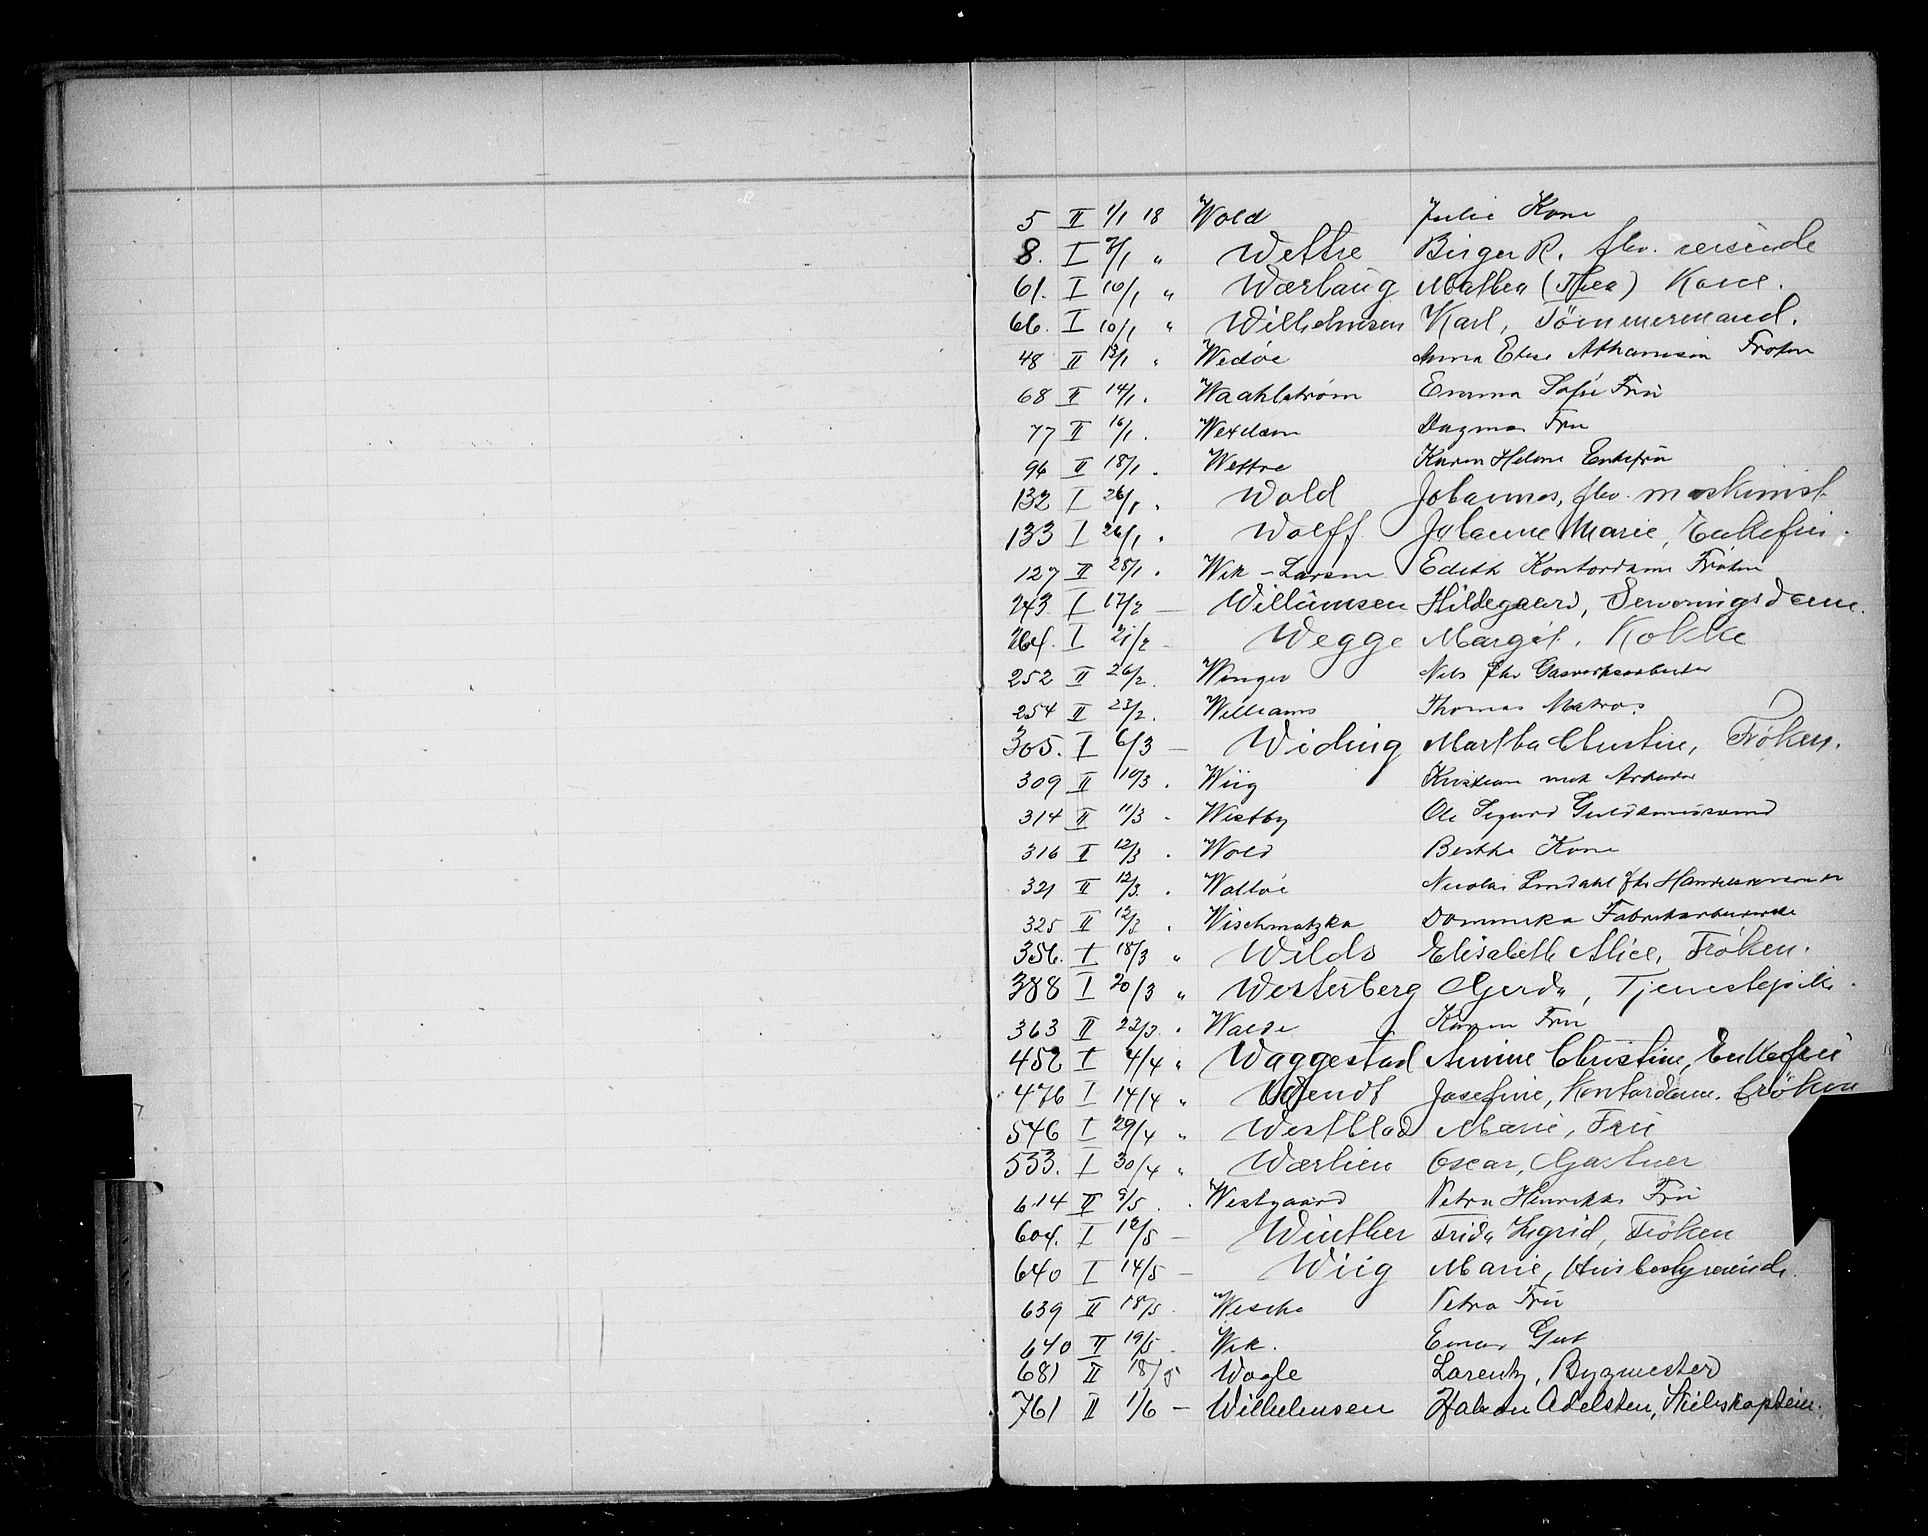 5 II 1/1 18 Wold Julie Kone
8. I 7/1 " Wettre Birger R. fhv. reisende
61. I 10/1 " Wærhaug Mathea (Thea) Kone.
66. I 10/1 " Wilhelmsen Karl, Tömmermand.
48 II 13/1 " Wedøe Anna Elise Frøken
68 II 14/1 . Waahlstrøm Emma Sofie Fru
77 II 16/1 . Wexelsen Dagmar Fru
96 II 18/1 . Wettre Karen Helene Enkefru
132 I 26/1 . Wold Johannes, fhv. maskinist
133 I 26/1 . Wolff Johanne Marie, Enkefru.
127 II 28/1 . Wik-Larsen Edith Kontordame Frøken
243. I 17/2 — Willumsen Hildegaard, Serveringsdame.
264. I 21/2 - Wegge Margit. Kokke
252 II 26/2 . Winger Nils fhv Gasverksarbeider
254 II 23/2 . Williams Thomas Matros
305. I 6/3 — Widing Martha Christine, Frøken.
309 II 10/3 . Wiig Kristian mek Arbeider
314 II 11/3 . Westby Ole Sigurd Guldsmedsvend
316 II 12/3 . Wold Berthe Kone
321 II 12/3 . Walløe Nicolai Lindahl fhv
325 II 12/3 . Wischmatzka Dominika Fabrikarbeiderske
356. I 18/3 " Wilds Elisabeth Alice, Frøken.
388 I 20/3 " Westerberg Gerda, Tjenestepike.
363 II 23/3 . Waede Karen Fru
452 I 4/4 " Waggestad Anine Christine, Enkefru
476 I 14/4 " Wendt Josefine, Kontordame. Frøken
546 I 29/4 " Westblad Marie, Fru
553. I 30/4 " Wærlien Oscar, Gartner
614 II 9/5 . Westgaard Petra Henrikke Fru
604. I 12/5 — Winther Frida Ingrid, Frøken
640 I 14/5 — Wiig Marie, Husbestyrerinde.
639 II 18/5 . Wesche Petra Fru
640 II 19/5 . Wik. Einar Gut
681 II 18/5 Wagle Lorentz, Bygmester
761 II 1/6 — Wilhelmsen Hakon Adelsten, Skibskaptein.